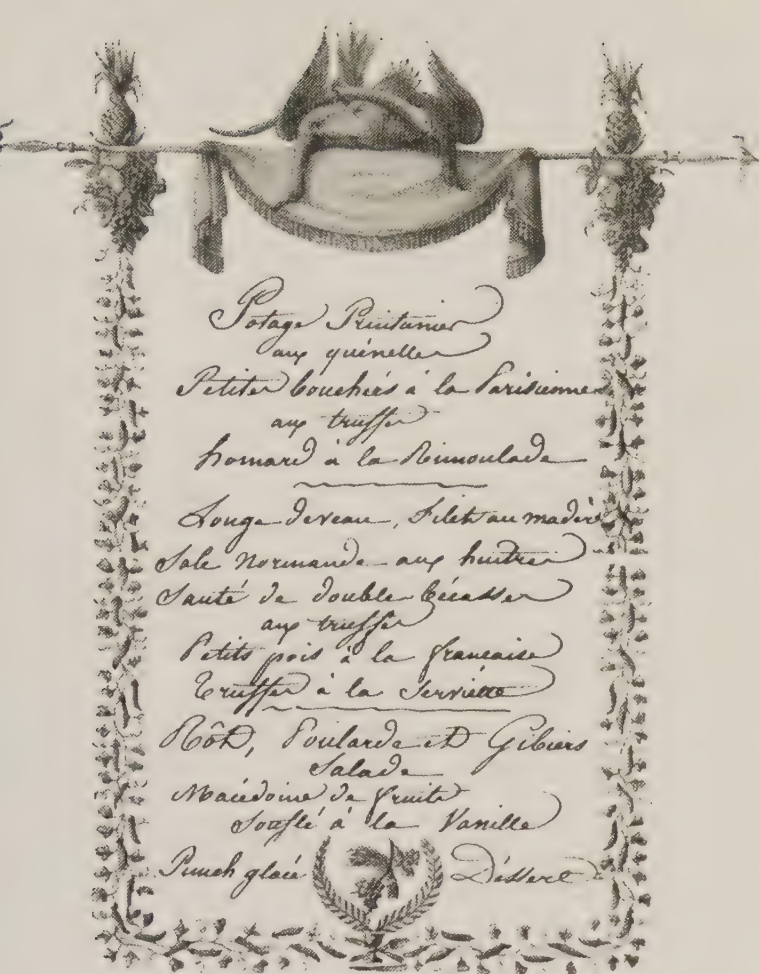 Potage Printanier
aux quénelles
Petites bouchées à la Parisienne
aux truffes
homard à la Rémoulade
Longe de veau, Filet au madère
Sole Normande aux huitres
Sauté de double Bécasses
aux truffes
Petits pois à la francaise
Truffes à la Serviette
Rôt, Poularde et Gibiers
Salade
Macédoine de fruits
Souflé à la Vanille
Punch glacé Déssert